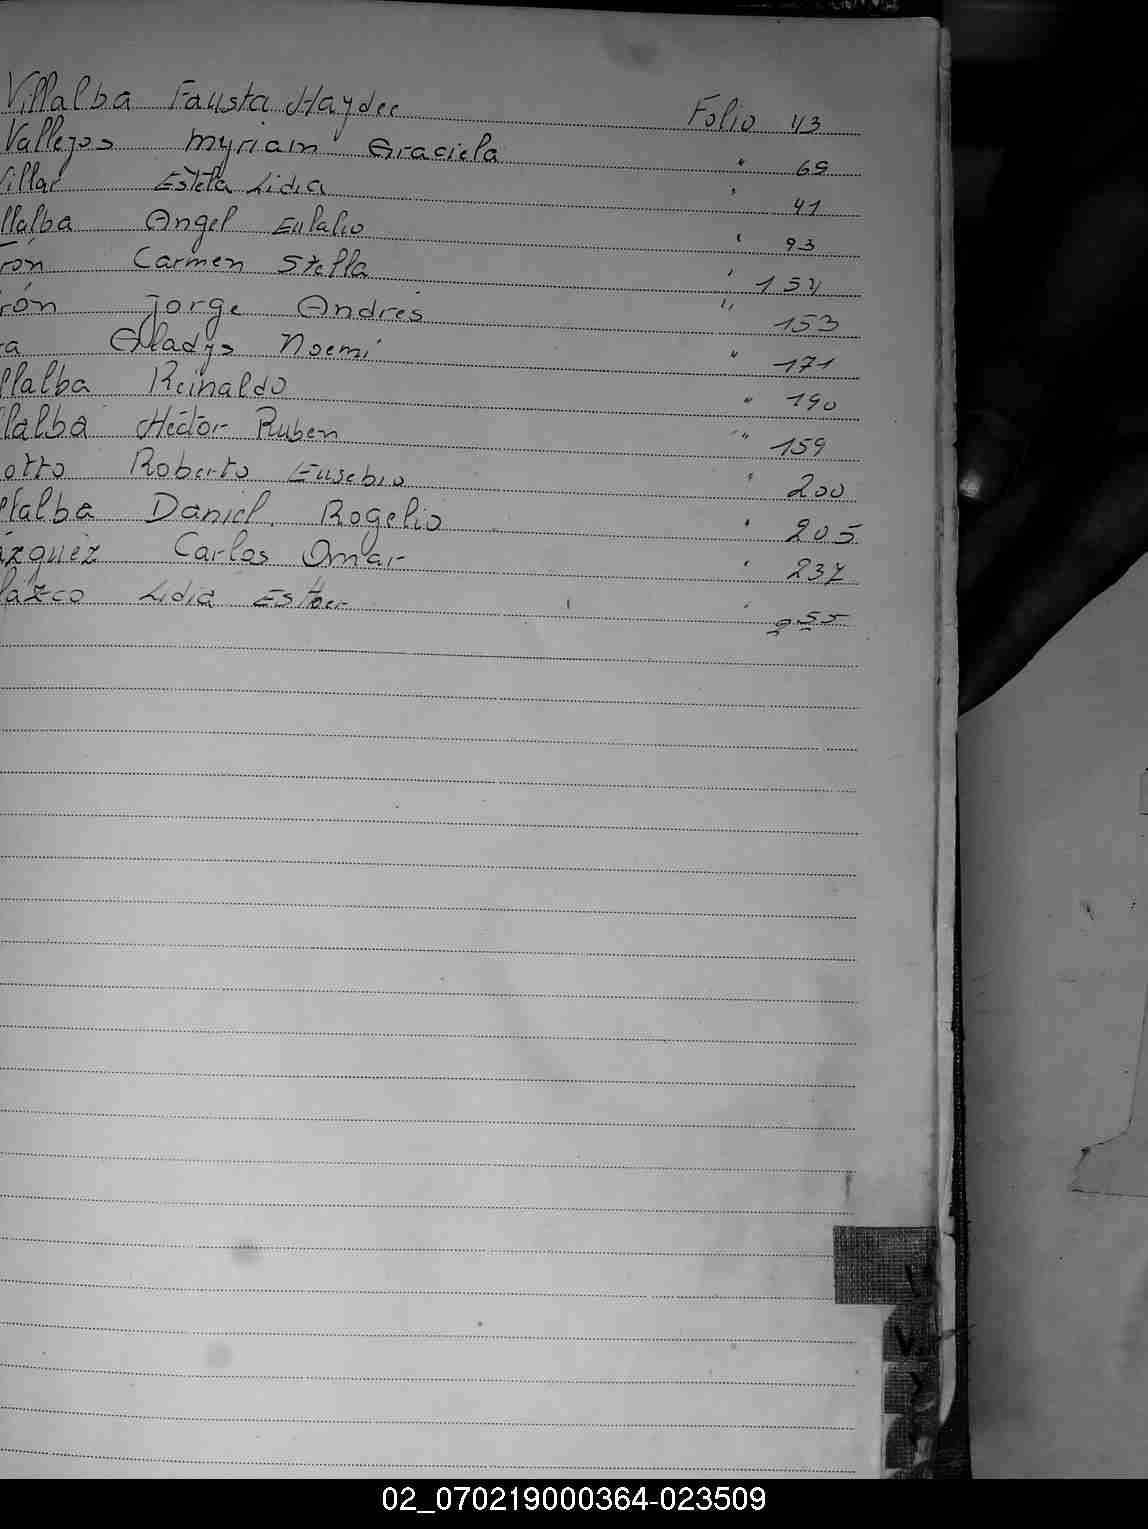 Villalba Fausta Haydee Folio 43
Vallejos Myriam Graciela " 69
Villar Estela Lidia " 41
llalba Angel Eulalio " 93
rón Carmen Stella " 154
rón Jorge Andrés " 153
a Gladys Noemi " 171
llalba Reinaldo " 190
llalba Héctor Ruben " 159
otto Roberto Eusebio " 200
llalba Daniel Rogelio " 205
ázquez Carlos Omar " 237
lazco Lidia Esther " 255
02_070219000364-023509